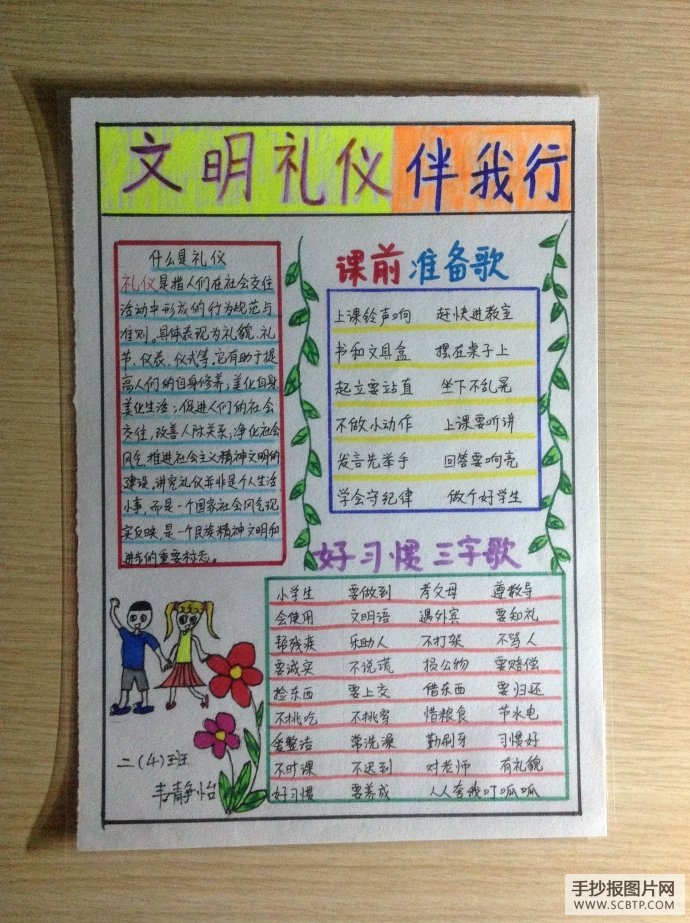 文明礼仪伴我行
什么是礼仪
礼仪是指人们在社会交往
活动中形成的行为规范与
准则。具体表现为礼貌、礼
节、仪表、仪式等。它有助于提
高人们的自身修养；美化自身
美化生活；促进人们的社会
交往，改善人际关系；净化社会
风气，推进社会主义精神文明的
建设，讲究礼仪并非是个人生活
小事，而是一个国家社会风气现
实反映，是一个民族精神文明和
进步的重要标志。
课前准备歌
上课铃声响 赶快进教室
书和文具盒 摆在桌子上
起立要站直 坐下不乱晃
不做小动作 上课要听讲
发言先举手 回答要响亮
学会守纪律 做个好学生
好习惯三字歌
小学生 要做到 孝父母 遵教导
会使用 文明语 遇外宾 要知礼
帮残疾 乐助人 不打架 不骂人
要诚实 不说谎 损公物 要赔偿
捡东西 要上交 借东西 要归还
不挑吃 不挑穿 惜粮食 节水电
爱整洁 常洗澡 勤刷牙 习惯好
不旷课 不迟到 对老师 有礼貌
好习惯 要养成 人人夸我叮呱呱
二(4)班
韦静怡
手抄报图片网
WWW.SCBTP.COM